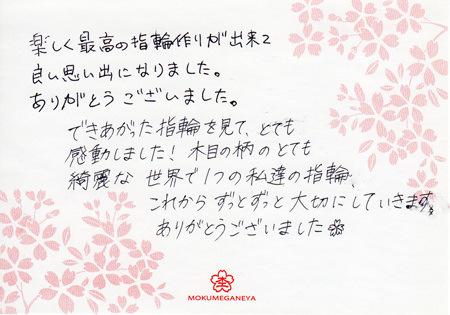 楽しく最高の指輪作りが出来て
良い思い出になりました。
ありがとうございました。
できあがった指輪を見て、とても
感動しました！木目の柄のとても
綺麗な世界で1つの私達の指輪、
これからずっとずっと大切にしていきます。
ありがとうございました
MOKUMEGANEYA